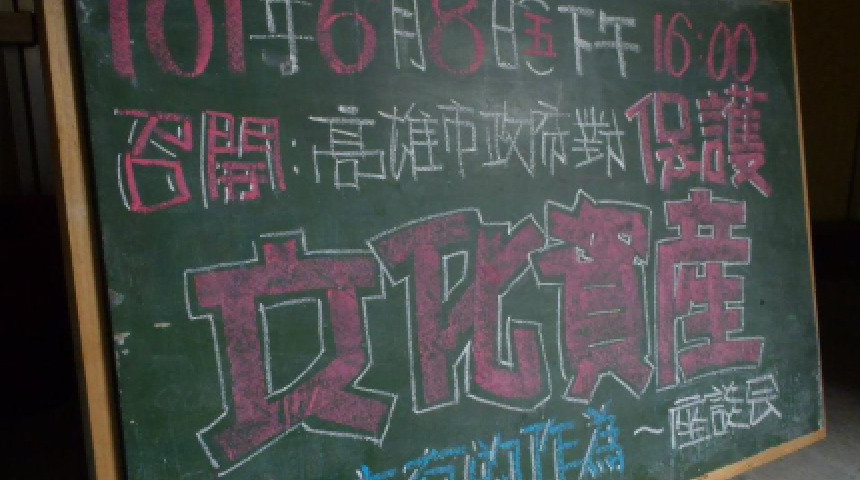 101年6月8日(五)下午16:00
召開:高雄市政府對保護
文化資產
有的作為~座談